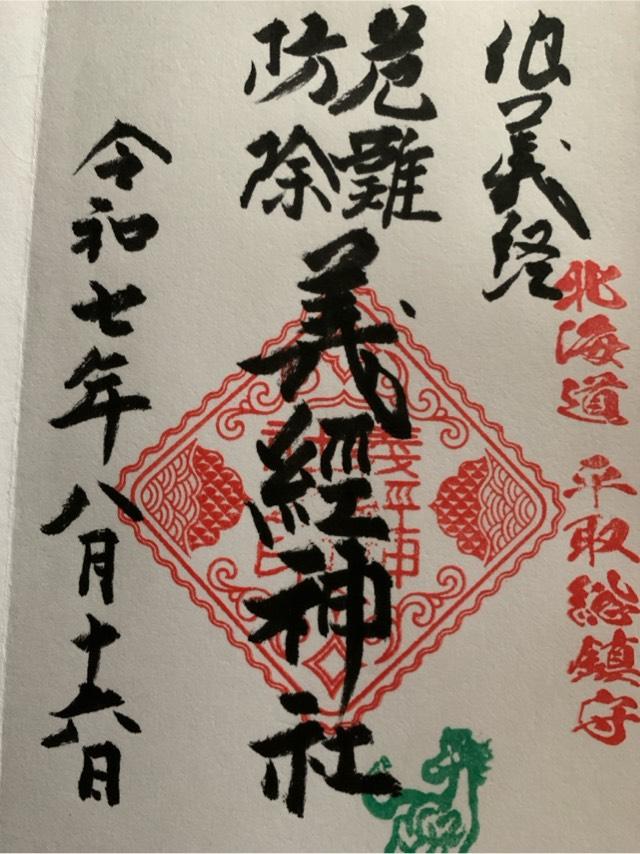 北海道 平取総鎮守
義経
危難
防除
義經神社
令和七年八月十六日